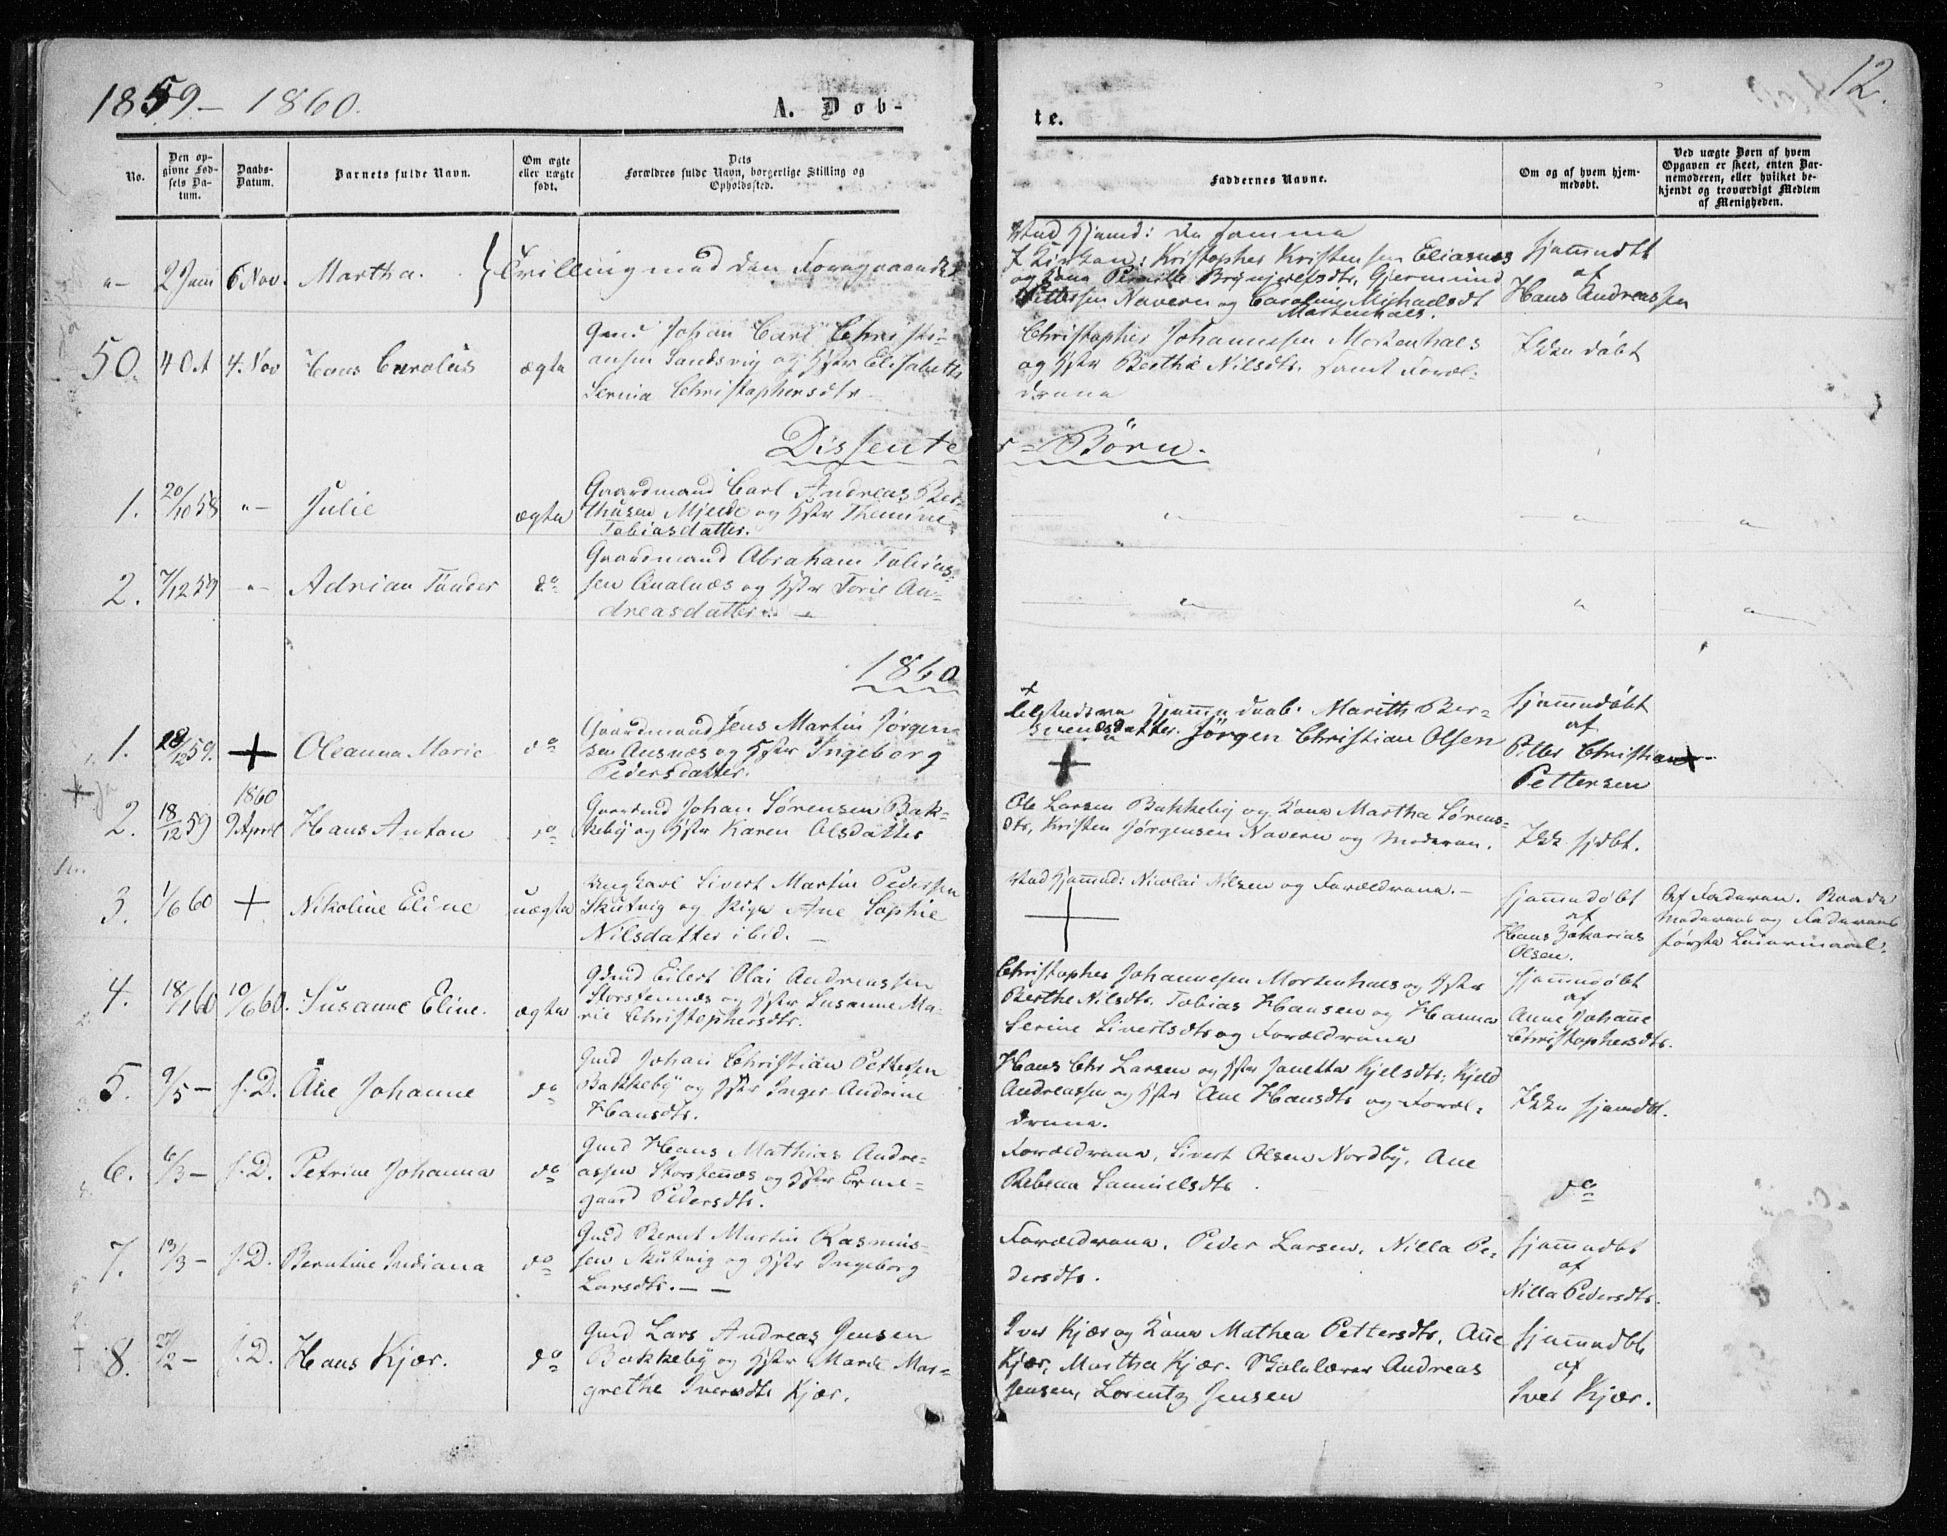 1859 – 1860.
A. Døb-
te.
12.
No.
Den op-
givne Fød-
sels Da-
tum.
Daabs-
Datum.
Barnets fulde Navn.
Om ægte
eller uægte
født.
Dets
Forældres fulde Navn, borgerlige Stilling og
Opholdssted.
Faddernes Navne.
Om og af hvem hjem-
medøbt.
Ved uægte Børn af hvem
Opgaven er skeet, enten Bar-
nemoderen, eller hvilket be-
kjendt og troværdigt Medlem
af Menigheden.
"– 2 Juni 6 Nov. Martha. Trilling med den Foregaaende
Ved Hjemd: De samme
I Kirken: Kristopher Kristensen Eliasnæs
og Kone Pernille Brynjelsdtr, Gjermund
Pettersen Navern og Caroline Michaelsdt
Mortenhals.
Hjemmdbt
af
Hans Andreassen
50. 4 Oct 4. Nov Hans Carolus ægte
Gmd Johan Carl Christi-
ansen Sandsvig og Hstr Elisabeth
Serina Christophersdtr
Christopher Johannesen Mortenhals
og Hstr Berthe Nilsdtr. samt Foræl-
drene
Ikke døbt
Dissenter-Børn.
1. 20/10 58 "– Julie ægte
Gaardmand Carl Andreas Ber-
thusen Mjelde og Hstr Themine
Tobiasdatter.
2. 7/12 59 "– Adrian Tønder do
Gaardmand Abraham Tobias-
sen Aualnæs og Hstr Torie An-
dreasdatter. –
1860
1. 28/12 59. + Oleanna Marie do
Gaardmand Jens Martin Jørgen-
sen Ausnæs og Hstr Ingeborg
Pedersdatter.
Tilstedev. Hjemmedaab. Marith Ber-
Jørgen Christian Olsen
+
Hjemmdøbt
af
Peder Christian
Pettersen
2. 18/12 59 1860 9 April Hans Anton do
Gaardmd Johan Sørensen Bak-
keby og Hstr Karen Olsdatter
Ole Larsen Bakkeby og Kone Martha Sørens-
dtr, Kristen Jørgensen Navern og Moderen.
Ikke hjdbt.
3. 1/6 60 + Nikoline Eline uægte
Ungkarl Sivert Martin Pedersen
Skutvig og Pige Ane Sophie
Nilsdatter ibid. –
Ved Hjemmd: Nicolai Nilsen og Forældrene. –
Hjemmdøbt
af
Hans Zakarias
Olsen.
Af Faderen. Baade
Moderens og Faderens
første Leiermaal.
4. 18/1 60 10/6 60. Susanne Eline. ægte
Gdmd Eilert Olai Andreassen
Storstennæs og Hstr Susanne Ma-
rie Christophersdtr.
Christopher Johannesen Mortenhals og Hstr
Berthe Nilsdtr. Tobias Hansen og Hanna
Serine Sivertsdtr og Forældrene
Hjemmdøbt
af
Anne Johanne
Christophersdtr.
5. 9/5 – s. D. Ane Johanne do
Gmd Johan Christian Pettersen
Bakkeby og Hstr Inger Andrine
Hansdtr.
Hans Chr Larsen og Hstr Janetta Kjelsdtr, Kjeld
Andreassen og Hstr Ane Hansdtr og Foræl-
drene.
Ikke hjemdbt.
6. 6/3 – s. D. Petrine Johanna do
Gmd Hans Mathias Andre-
assen Storstennæs og Hstr Erme-
gaard Pedersdtr.
Forældrene, Sivert Olsen Nordby, Ane
Rebecca Samuelsdtr.
do
7. 13/3 – s. D. Berntine Indiana do
Gmd Bernt Martin Rasmus-
sen Skutvig og Hstr Ingeborg
Larsdtr. – –
Forældrene. Peder Larsen, Nilla Pe-
dersdtr.
Hjemmdbt
af
Nilla Pedersdtr.
8. 27/2 – s. D. Hans Kjær. do
Gmd Lars Andreas Jensen
Bakkeby og Hstr Marde Mar-
grethe Iversdtr Kjær.
Iver Kjær og Kone Mathea Pettersdtr, Ane
Kjær, Martha Kjær. Skolelærer Andreas
Jensen, Lorentz Jensen
Hjemmdbt
af
Iver Kjær.